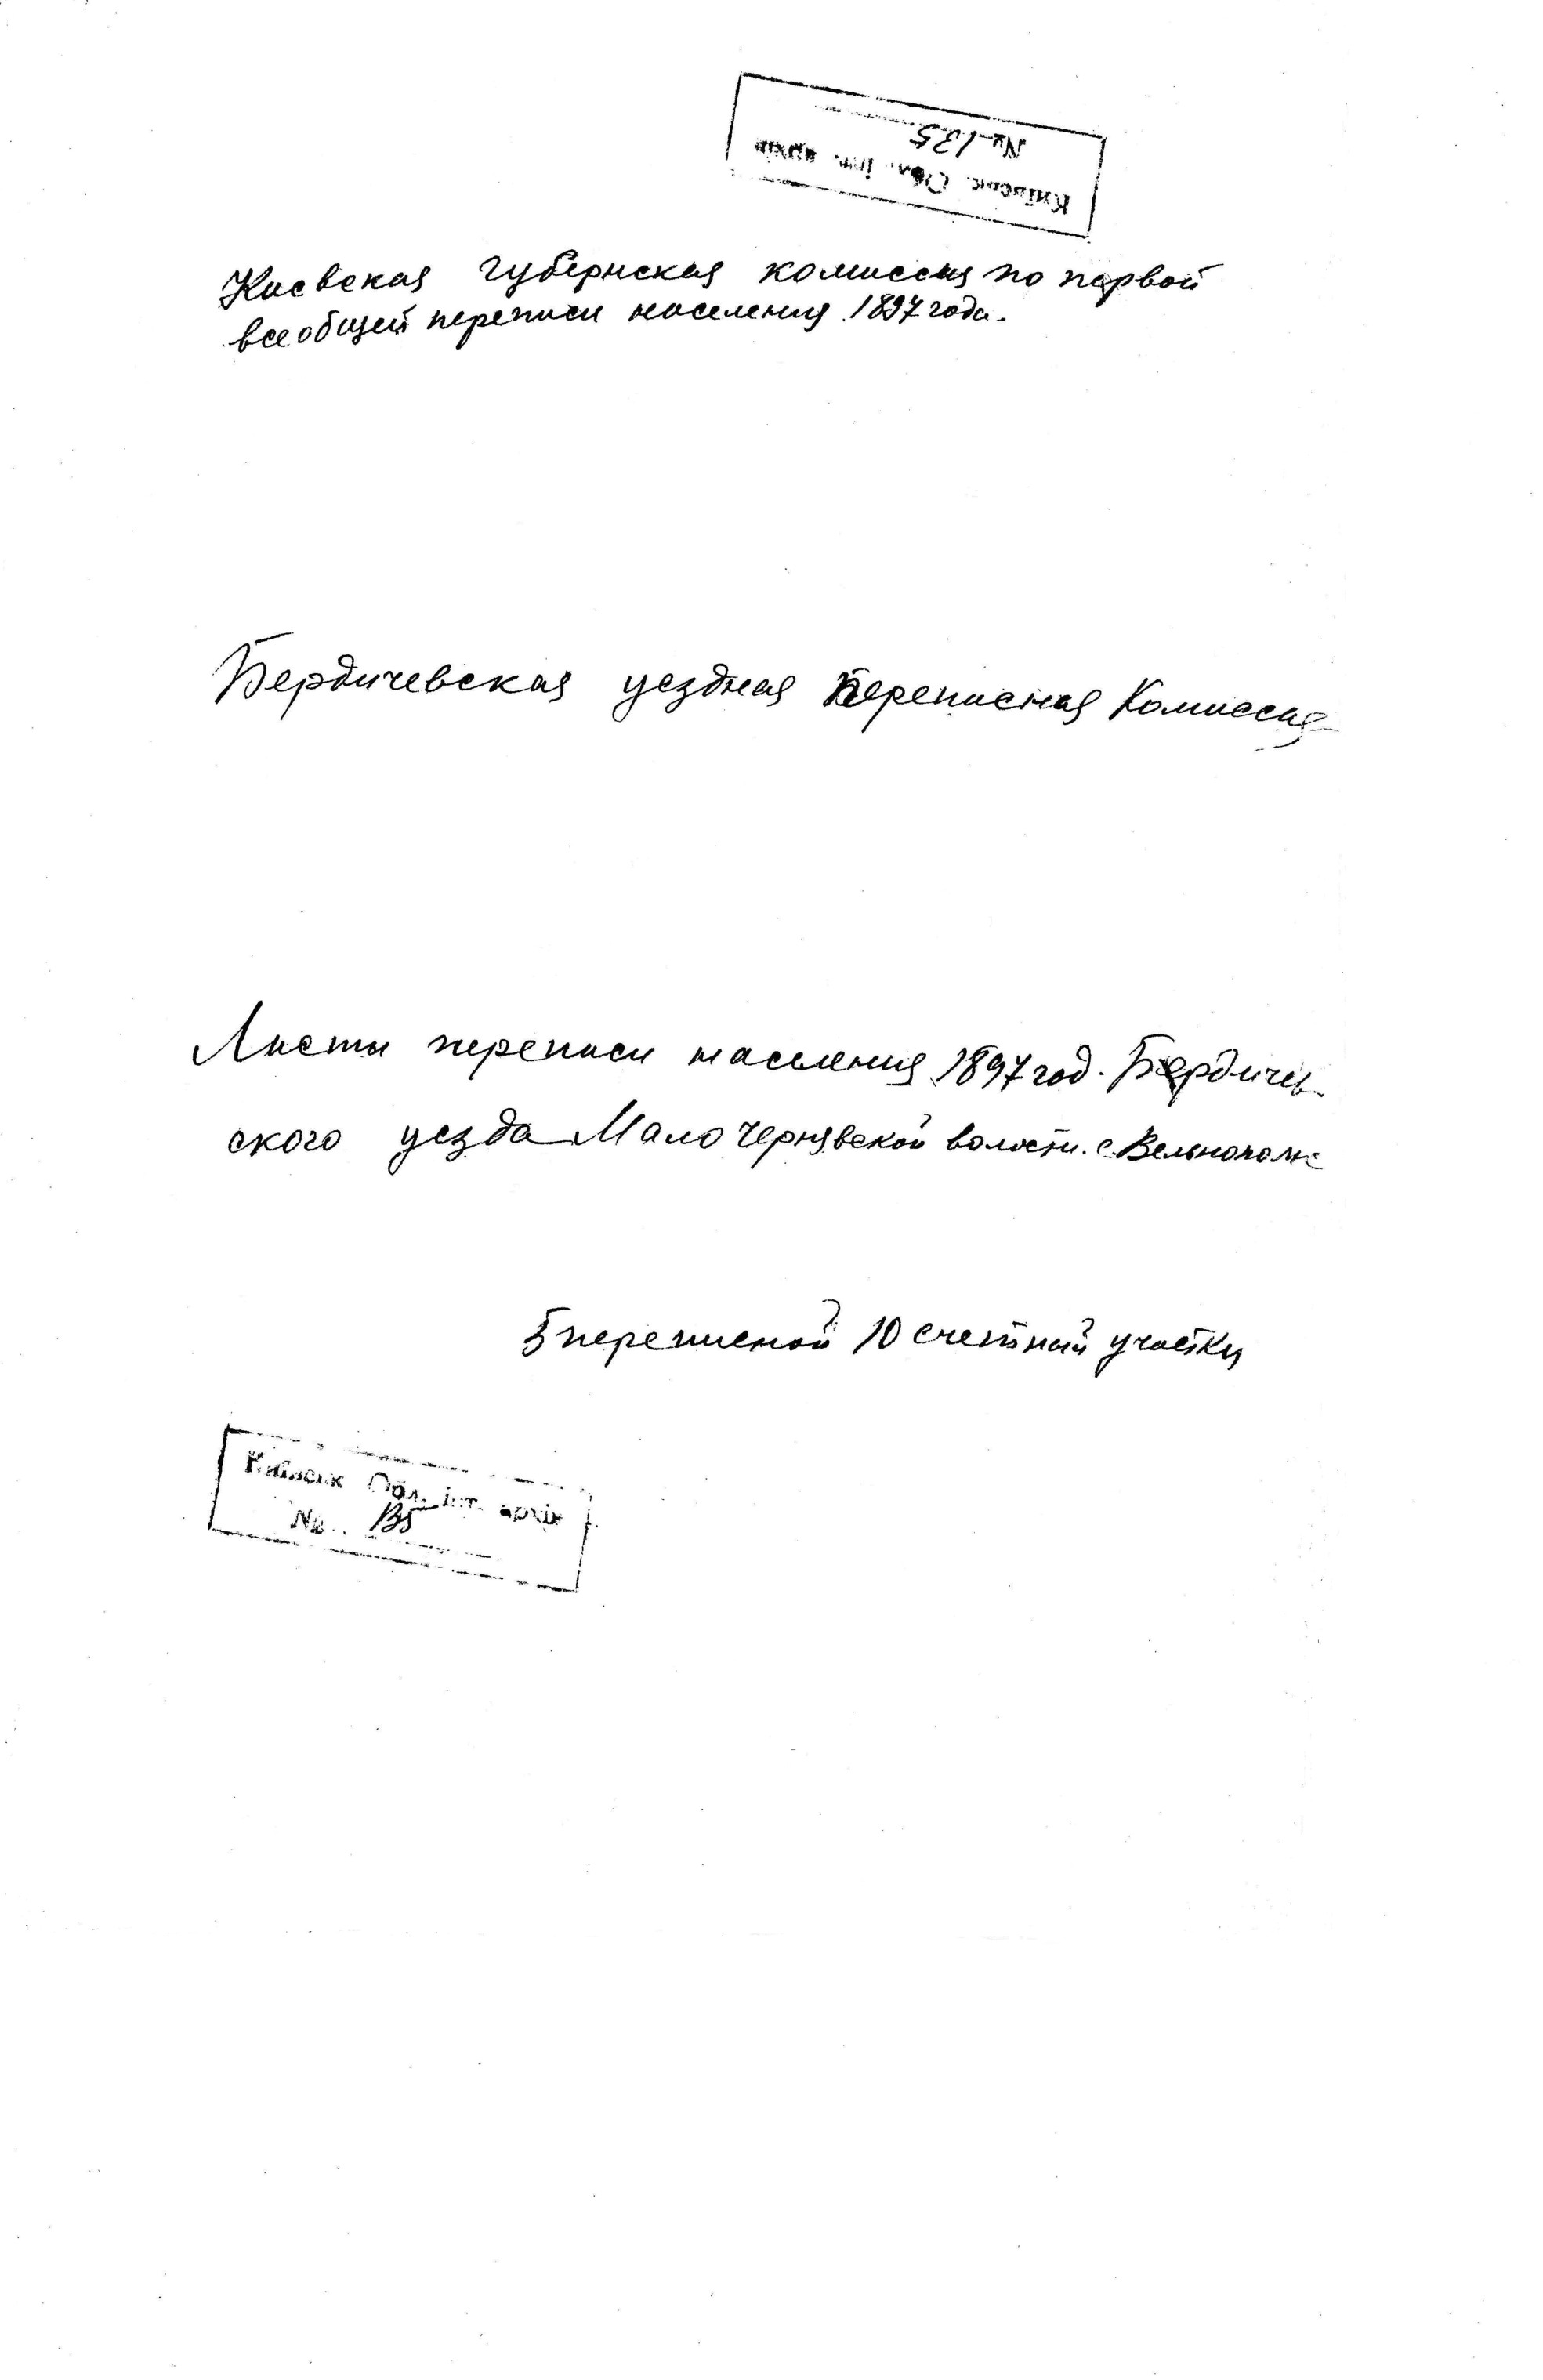 Київськ. Обл. іст. архів
№ 135
Киевская губернская комиссия по первой
всеобщей переписи населения 1897 года.
Бердичевская уездная Переписная Комиссия
Листы переписи населения 1897 год. Бердичев-
ского уезда Мало Чернявской волости. с.
5 переписной 10 счетный участки
Київськ Обл. іст. архів
№ 135